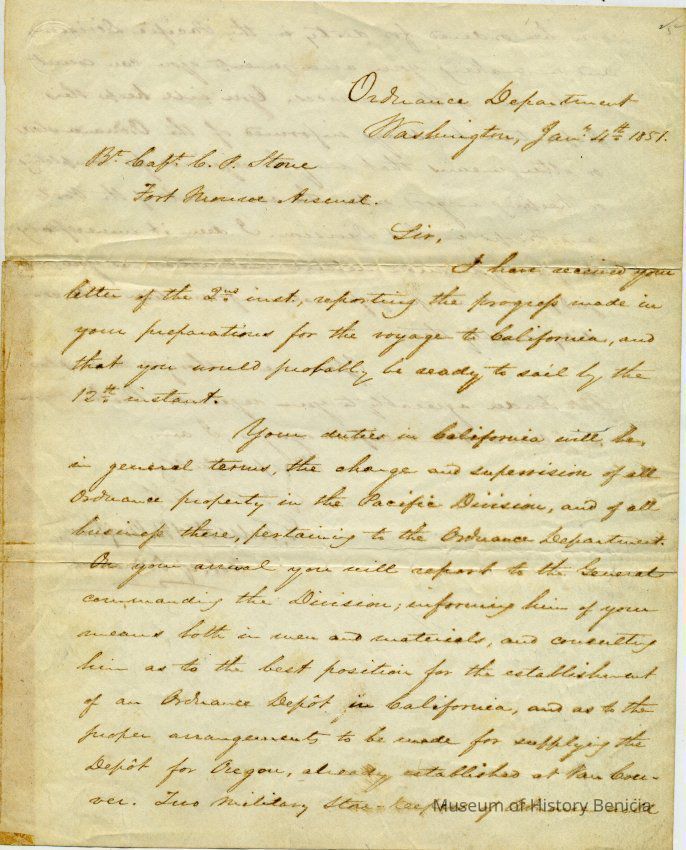 Ordnance Department
Washington, Jany. 4th 1851.
Bt. Capt. C. P. Stone
Fort Monroe Arsenal.
Sir,
I have received your
letter of the 2nd inst., reporting the progress made in
your preparations for the voyage to California, and
that you would probably be ready to sail by the
12th instant.
Your duties in California will be,
in general terms, the charge and supervision of all
Ordnance property in the Pacific Division, and of all
business there, pertaining to the Ordnance Department.
On your arrival you will report to the General
commanding the Division; informing him of your
means both in men and materials, and consulting
him as to the best position for the establishment
of an Ordnance Depôt in California, and as to the
proper arrangements to be made for supplying the
Depôt for Oregon, already established at Van Cou-
ver. Two Military Store-keepers
Museum of History Benicia